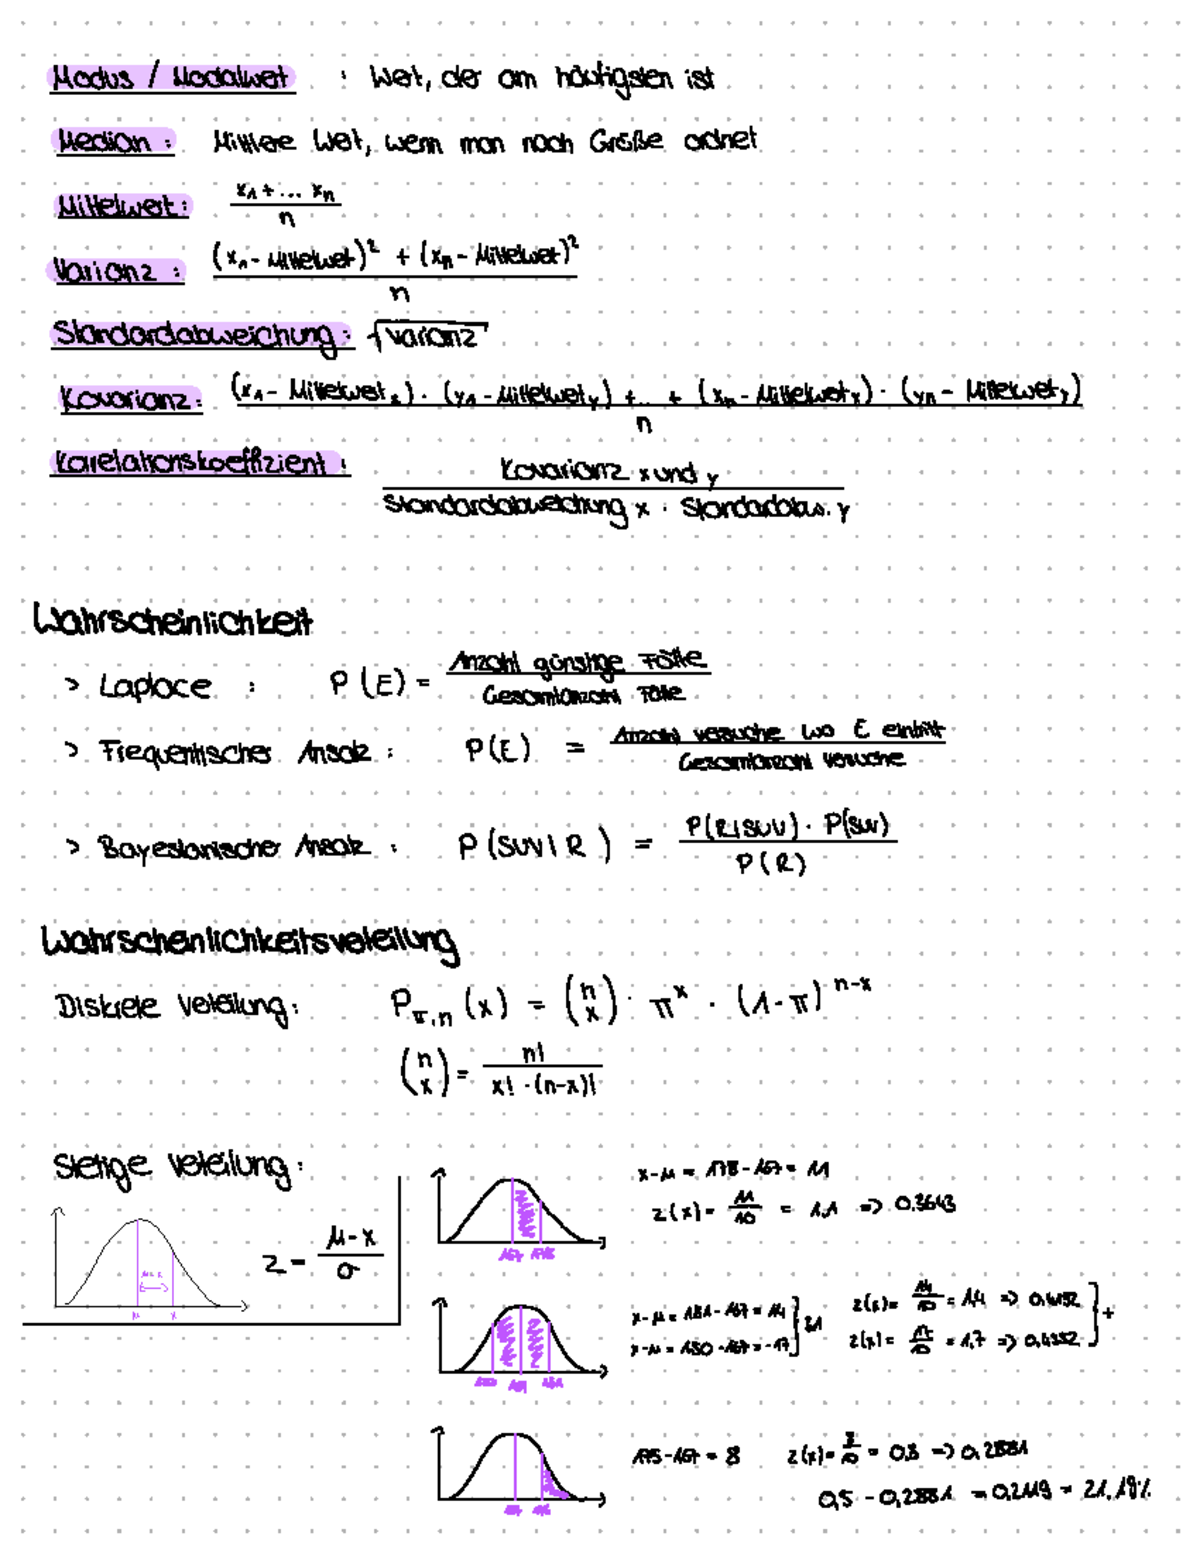 Modus / Modalwert : Wert, der am häufigsten ist
Median : Mittlere Wert, wenn man nach Größe ordnet
Mittelwert : (x₁ + ... xₙ) / n
Varianz : ((x₁ - Mittelwert)² + (xₙ - Mittelwert)²) / n
Standardabweichung : √Varianz
Kovarianz : ((x₁ - Mittelwertₓ) · (y₁ - Mittelwert_y) + .. + (xₙ - Mittelwertₓ) · (yₙ - Mittelwert_y)) / n
Korrelationskoeffizient : Kovarianz x und y / Standardabweichung x · Standardabw. y
Wahrscheinlichkeit
> Laplace : P(E) = Anzahl günstige Fälle / Gesamtanzahl Fälle
> Frequentischer Ansatz : P(E) = Anzahl Versuche wo E eintritt / Gesamtanzahl Versuche
> Bayesianischer Ansatz : P(SUV|R) = P(R|SUV) · P(SUV) / P(R)
Wahrscheinlichkeitsverteilung
Diskrete Verteilung : P_π,n (x) = (n x) · π^x · (1-π)^n-x
(n x) = n! / x! · (n-x)!
Stetige Verteilung :
z = μ-x / σ
μ x
x-μ = 178-167 = 11
z(x) = 11/10 = 1,1 => 0.3643
167 178
x-μ = 181-167 = 14
x-μ = 150-167 = -17
z(x) = 14/10 = 1,4 =>
z(x) = 17/10 = 1,7 =>
+
175-167 = 8 z(x) = 8/10 = 0,8 => 0,2881
0,5 - 0,2881 = 0,2119 = 21,19%